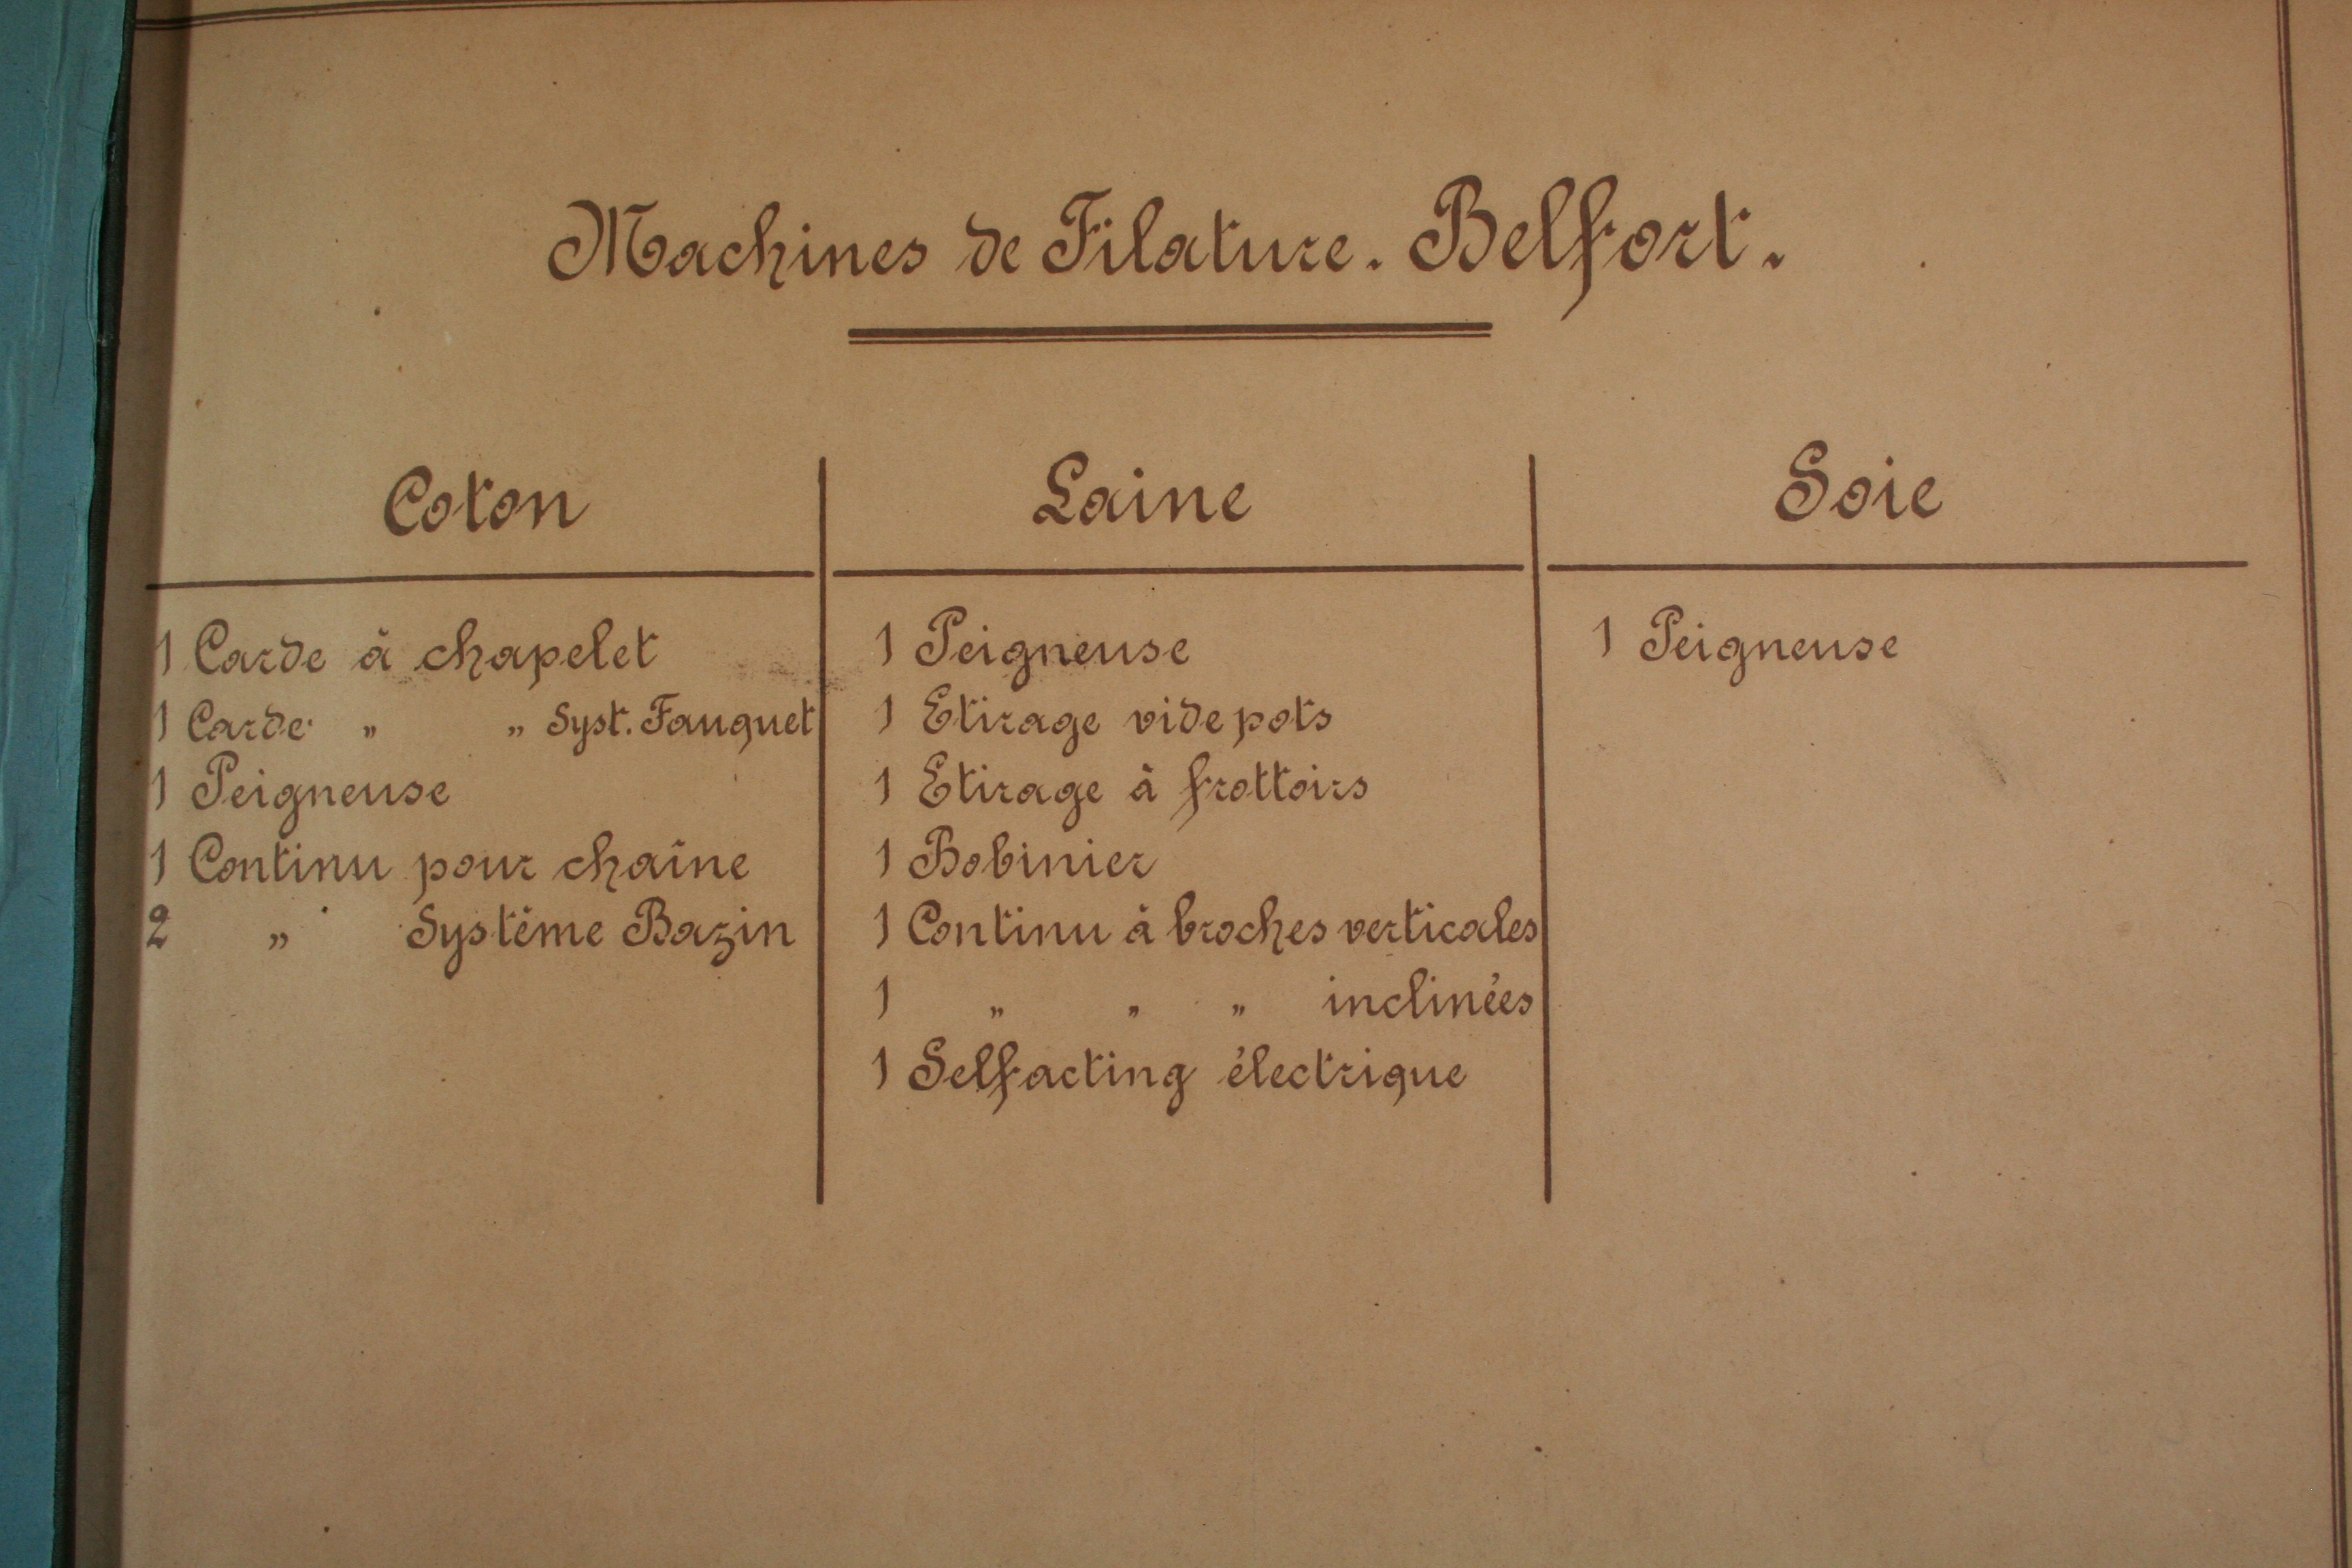 Machines de Filature. Belfort.
Coton
1 Carde à chapelet
1 Carde „ „ Syst. Fauquet
1 Peigneuse
1 Continu pour chaîne
2 „ Système Bazin
Laine
1 Peigneuse
1 Etirage vide pots
1 Etirage à frottoirs
1 Bobinier
1 Continu à broches verticales
1 „ „ „ inclinées
1 Selfacting électrique
Soie
1 Peigneuse